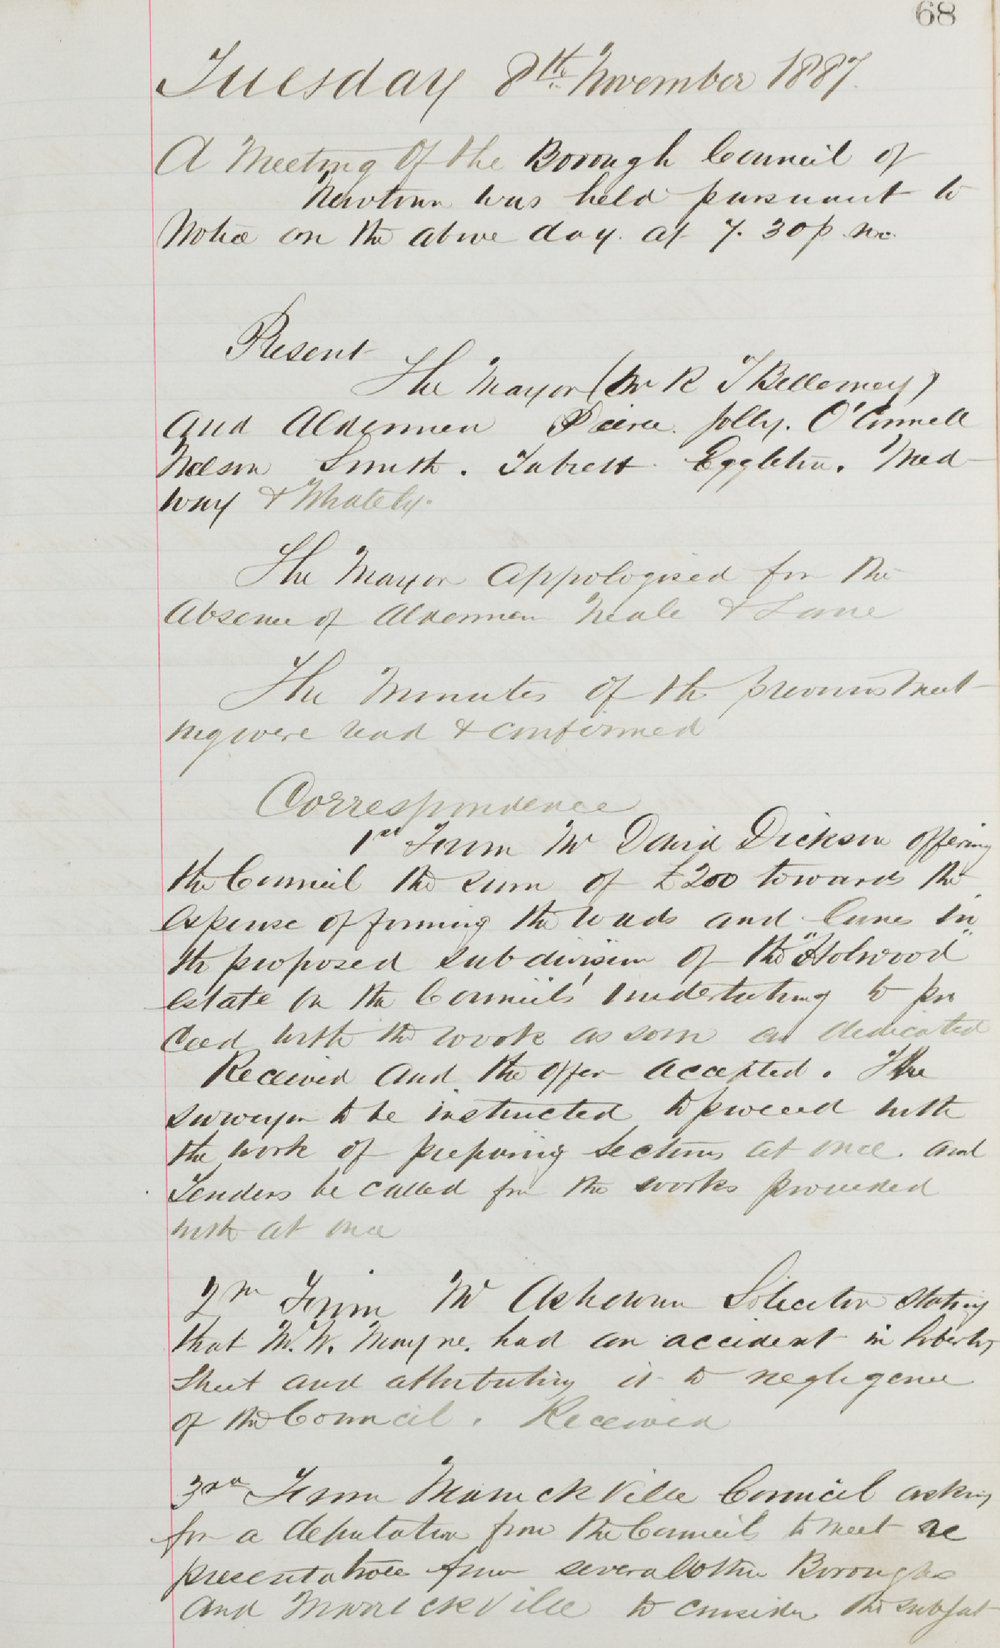 68
Tuesday 8th November 1887.
A Meeting Of the Borough Council of
Newtown was held pursuant to
Notice on the above day. at 7.30 p.m.
Present
The Mayor (Mr R T Bellemey)
and Aldermen Pierce. Jolly. O'Connell
Nelson Smith. Tabrett. Eggleton. Med-
way & Whately.
The Mayor Appologised for the
Absence of Aldermen Neale & Lane
The Minutes of the previous Meet-
ing were read & confirmed
Correspondence
1st From Mr David Dickson offering
the Council the sum of £200 towards the
expense of forming the roads and lanes in
the proposed subdivision of the "Holwood"
estate on the Councils undertaking to pro
ceed with the work as soon as dedicated
Received and the offer accepted. The
surveyor to be instructed to proceed with
the work of preparing Sections at once. and
Tenders be called for the works proceeded
with at once
2nd From Mr Ashdown Solicitor stating
that Mr. W. Mayne. had an accident in Roberts
Street and attributing it to negligence
of the Council. Received
3rd From Marrickville Council asking
for a deputation from the Council to meet re
presentatives from several other Boroughs
and Marrickville to consider the subject